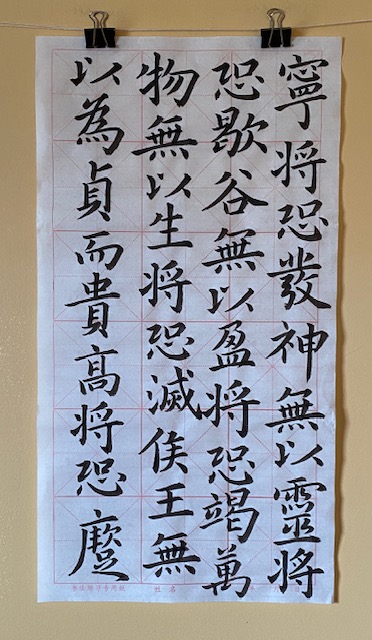 寧将恐發神無以靈将
恐歇谷無以盈将恐竭萬
物無以生将恐滅侯王無
以為貞而貴高将恐蹷
姓名